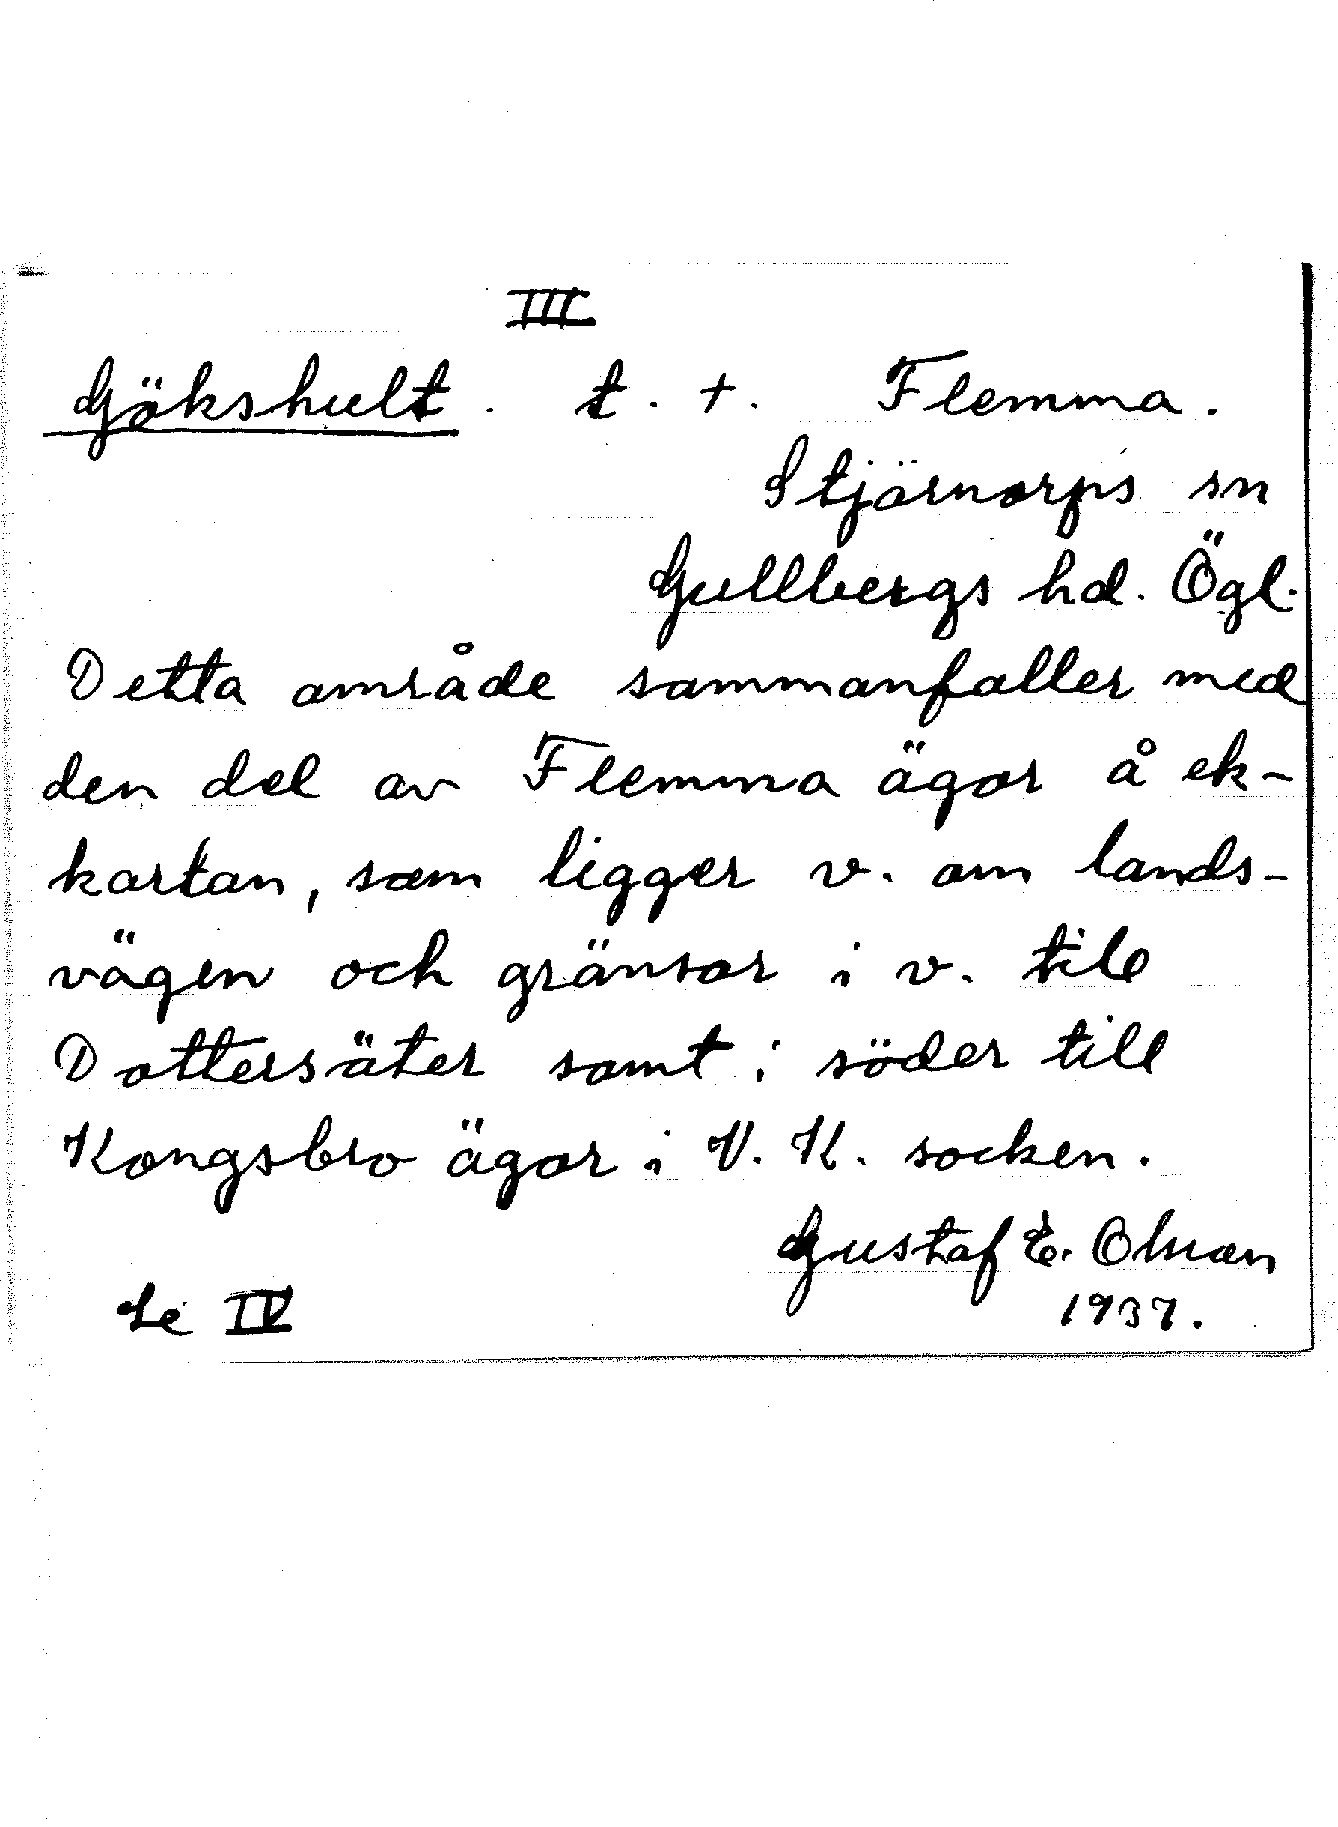 III
Gökshult. t. +. Flemma.
Stjärnorps sn
Gullbergs hd. Ögl.
Detta område sammanfaller med
den del av Flemma ägor å ek-
kartan, som ligger v. om lands-
vägen och gränsar i v. till
Dottersäter samt i söder till
Kongsbro ägor i V. K. socken.
Gustaf E. Olsson
1937.
Se IV